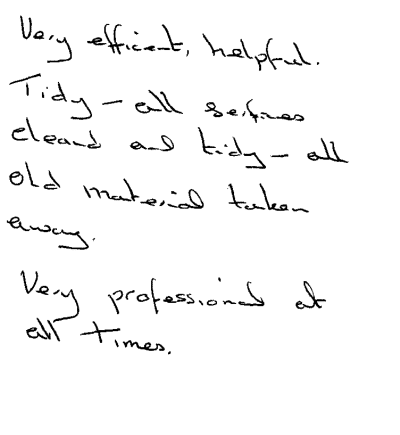 Very efficient, helpful.
Tidy – all surfaces
cleaned and tidy – all
old material taken
away.
Very professional at
all times.